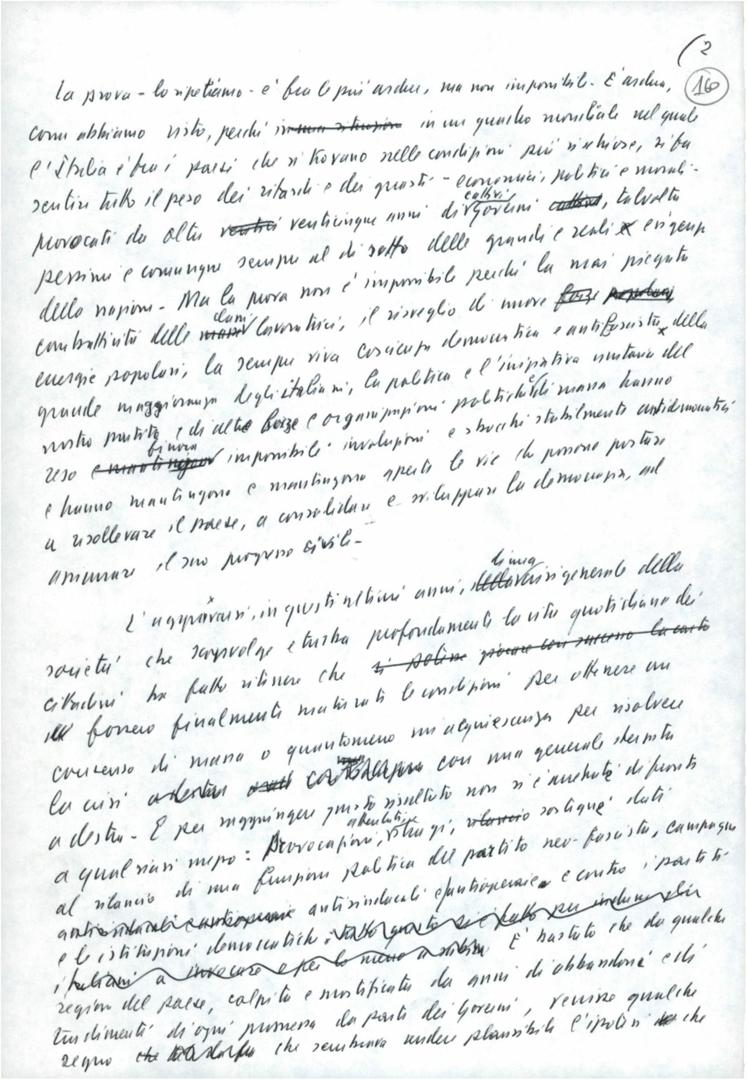 (2
16
La prova - lo ripetiamo - è fra le più ardue, ma non impossibile. È ardua,
come abbiamo visto, perché in una situazione in un quadro mondiale nel quale
l'Italia è fra i paesi che si trovano nelle condizioni più rischiose, si fa
sentire tutto il peso dei ritardi e dei guasti - economici, politici e morali -
provocati da oltre venticinque anni di cattivi governi, talvolta
pessimi e comunque sempre al di sotto delle grandi e reali esigenze
della nazione. Ma la prova non è impossibile perché la mai piegata
combattività delle classi lavoratrici, il risveglio di nuove forze popolari
energie popolari, la sempre viva coscienza democratica e antifascista della
grande maggioranza degli italiani, la politica e l'iniziativa unitaria del
nostro partito e di altre forze e organizzazioni politiche di massa hanno
reso finora impossibili involuzioni e sbocchi stabilmente antidemocratici
e hanno mantengono e mantengono aperte le vie che possono portare
a risollevare il paese, a consolidare e sviluppare la democrazia, ad
assicurare il suo progresso civile -
L'aggravarsi, in questi ultimi anni, di una crisi generale della
società che sconvolge e turba profondamente la vita quotidiana dei
cittadini ha fatto ritenere che si potesse giocare con successo la carta
fossero finalmente maturati le condizioni per ottenere un
consenso di massa o quantomeno un'acquiescenza per risolvere
la crisi con una generale sterzata
a destra. E per raggiungere questo risultato non si è arretrati di fronte
a qualsiasi mezzo: Provocazioni, attentati, stragi, rilancio sostegni dati
al rilancio di una funzione politica del partito neo-fascista, campagne
antisindacali antioperaie antisindacali e antioperaie e contro i partiti
e le istituzioni democratiche. Tutto questo si è fatto per indurre gli
italiani a invocare e per lo meno a subire È bastato che da qualche
regione del paese, colpita e mortificata da anni di abbandono e di
tradimenti di ogni promessa da parte dei Governi, venisse qualche
segno che che sembrava rendere plausibile l'ipotesi che